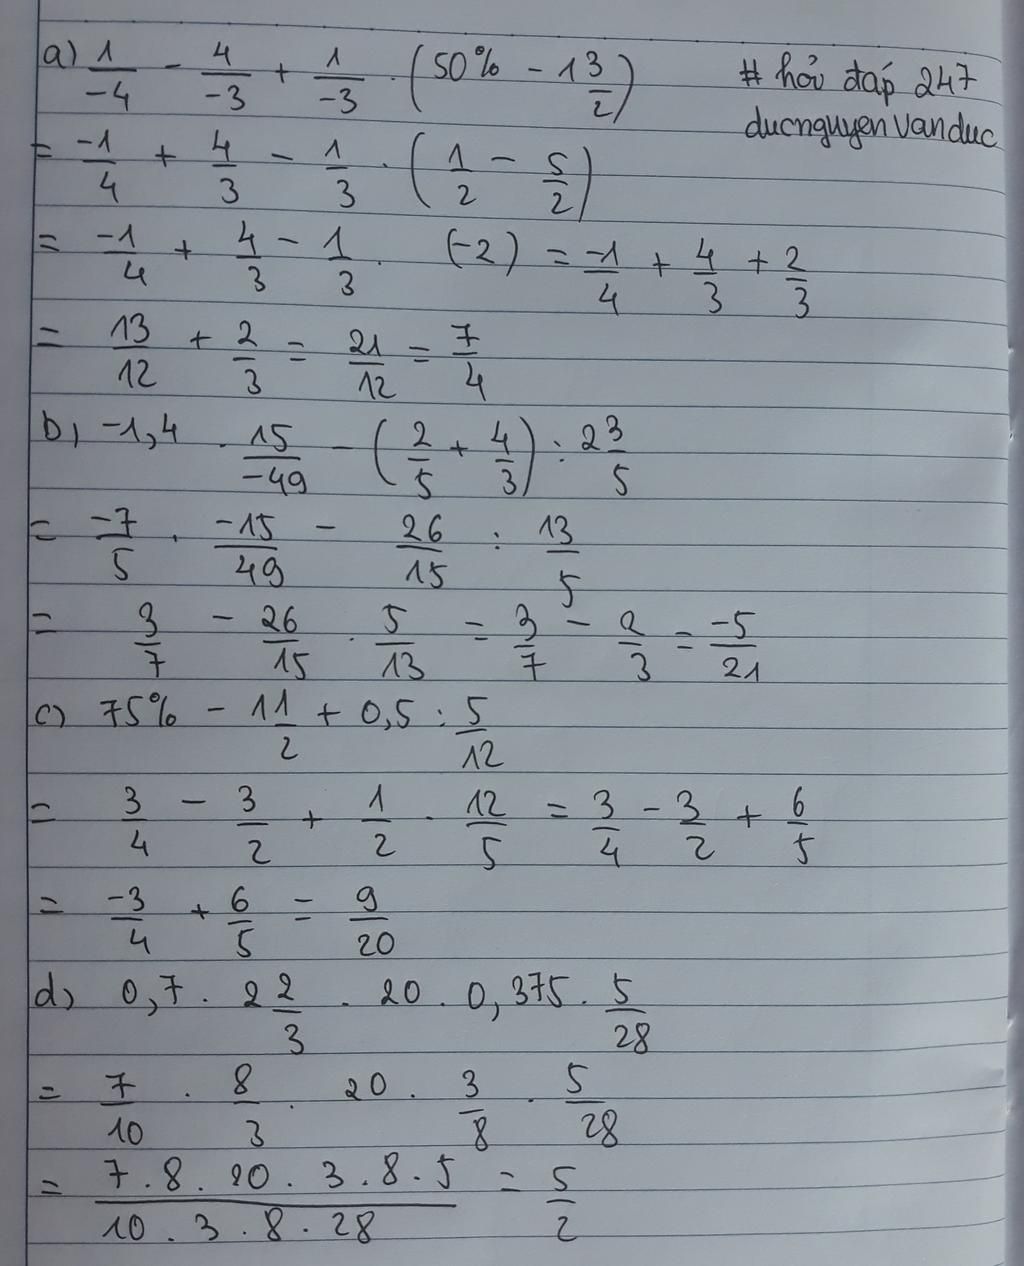 a) 1/-4 - 4/-3 + 1/-3 . (50% - 1 3/2) # hỏi đáp 247
ducnguyenvanduc
= -1/4 + 4/3 - 1/3 . (1/2 - 5/2)
= -1/4 + 4/3 - 1/3 . (-2) = -1/4 + 4/3 + 2/3
= 13/12 + 2/3 = 21/12 = 7/4
b, -1,4 . 15/-49 - (2/5 + 4/3) : 2 3/5
= -7/5 . -15/49 - 26/15 : 13/5
= 3/7 - 26/15 . 5/13 = 3/7 - 2/3 = -5/21
c) 75% - 1 1/2 + 0,5 : 5/12
= 3/4 - 3/2 + 1/2 . 12/5 = 3/4 - 3/2 + 6/5
= -3/4 + 6/5 = 9/20
d, 0,7 . 2 2/3 . 20 . 0,375 . 5/28
= 7/10 . 8/3 . 20 . 3/8 . 5/28
= 7 . 8 . 20 . 3 . 8 . 5 / 10 . 3 . 8 . 28 = 5/2